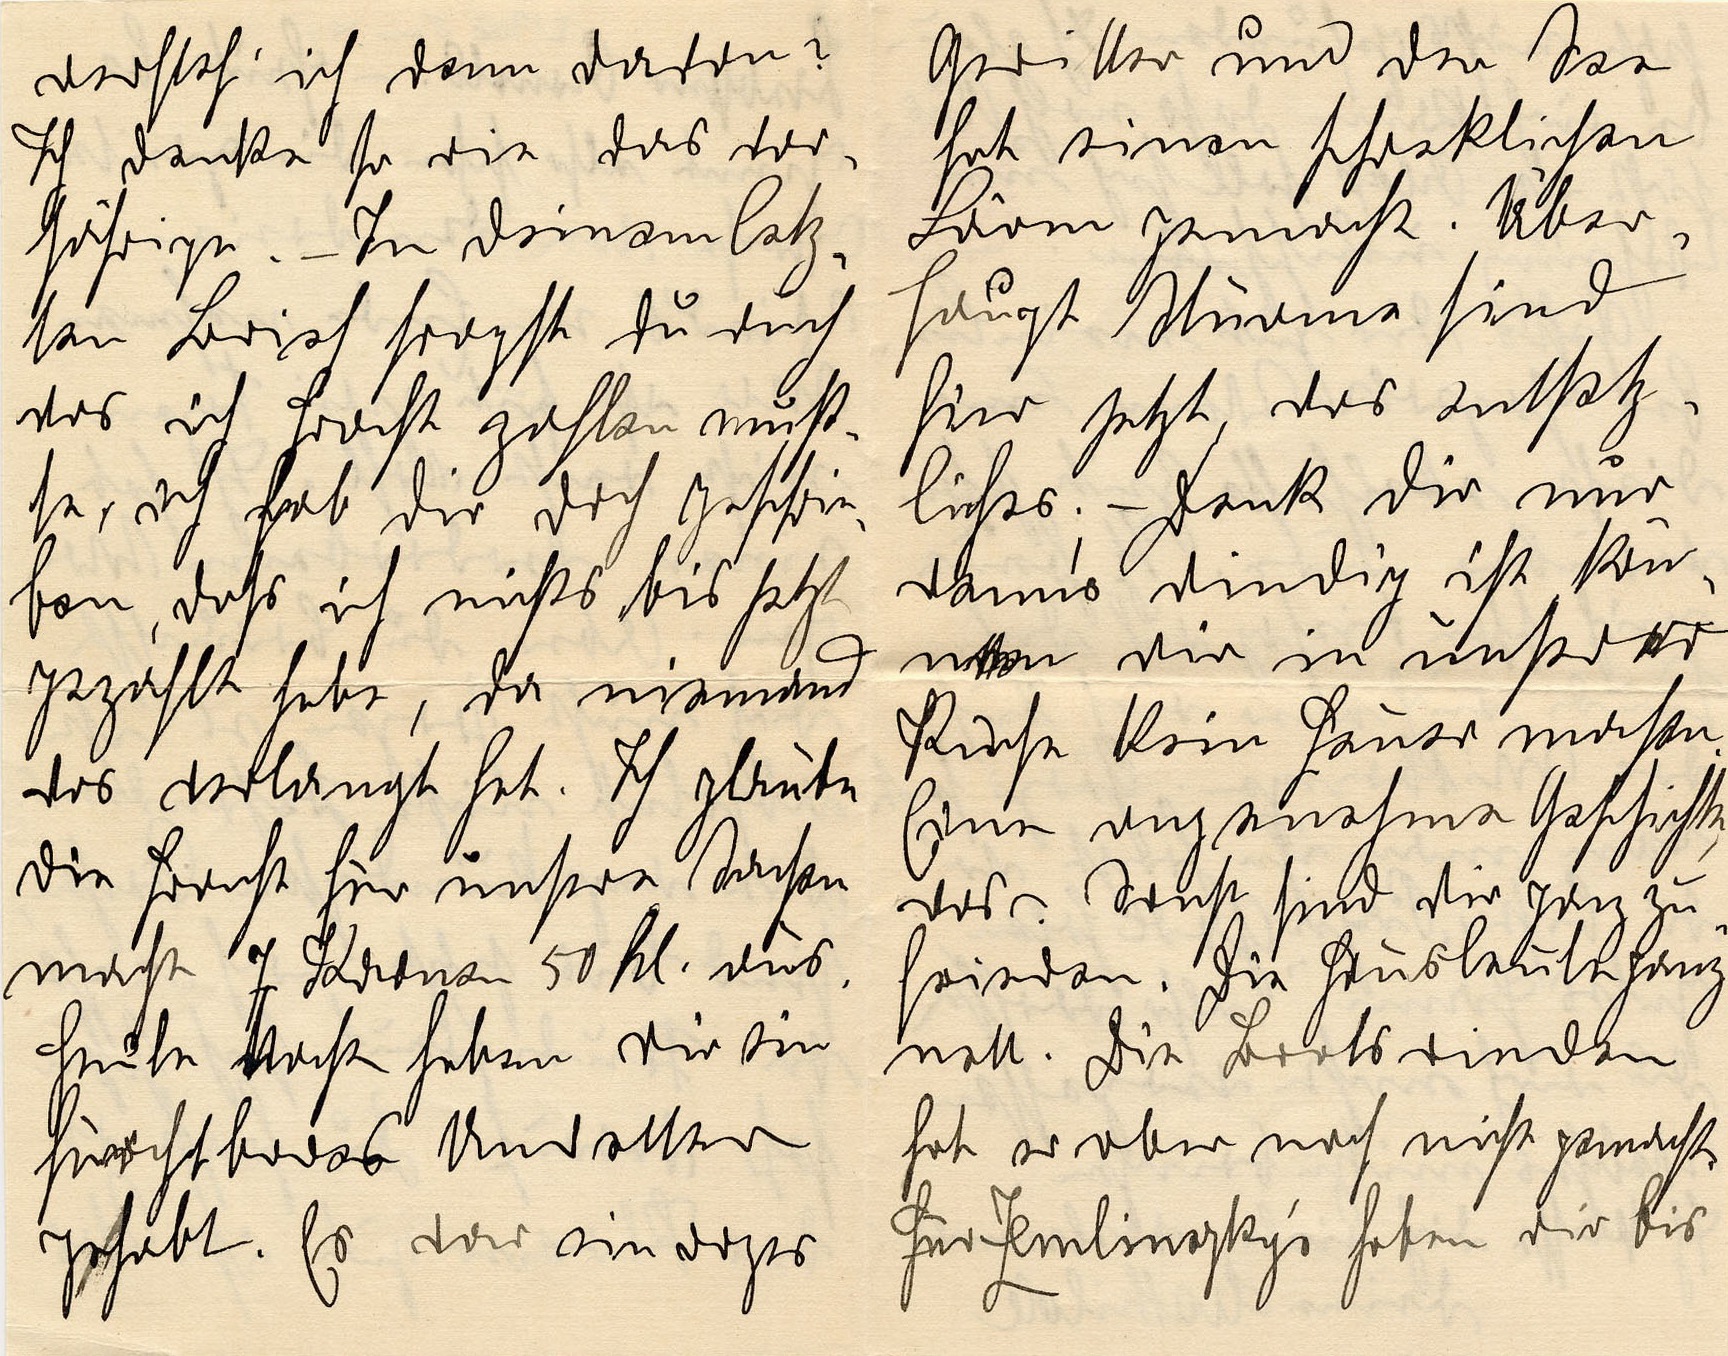 versteh' ich denn davon?
Ich denke so wie das vor-
jährige. – In deinem letz-
ten Brief fragst du auch
was ich Fracht zahlen muß-
te, ich hab dir doch geschrie-
ben, daß ich nichts bis jetzt
gezahlt habe, da niemand
was verlangt hat. Ich glaube
die Fracht für unsere Sachen
macht 7 Kronen 50 hl. aus.
Heute Nacht haben wir ein
furchtbares Unwetter
gehabt. Es war ein arges
Gewitter und der See
hat einen schrecklichen
Lärm gemacht. Über-
haupt Stürme sind
hier jetzt, was entsetz-
liches. – Denk dir nur
wenn's windig ist kön-
nen wir in unserer
Küche kein Feuer machen.
Eine angenehme Geschichte,
was? Sonst sind wir ganz zu-
frieden. Die Hausleute ganz
nett. Die Bootswinden
hat er aber noch nicht gemacht.
Für Zemlinszky's haben wir bis